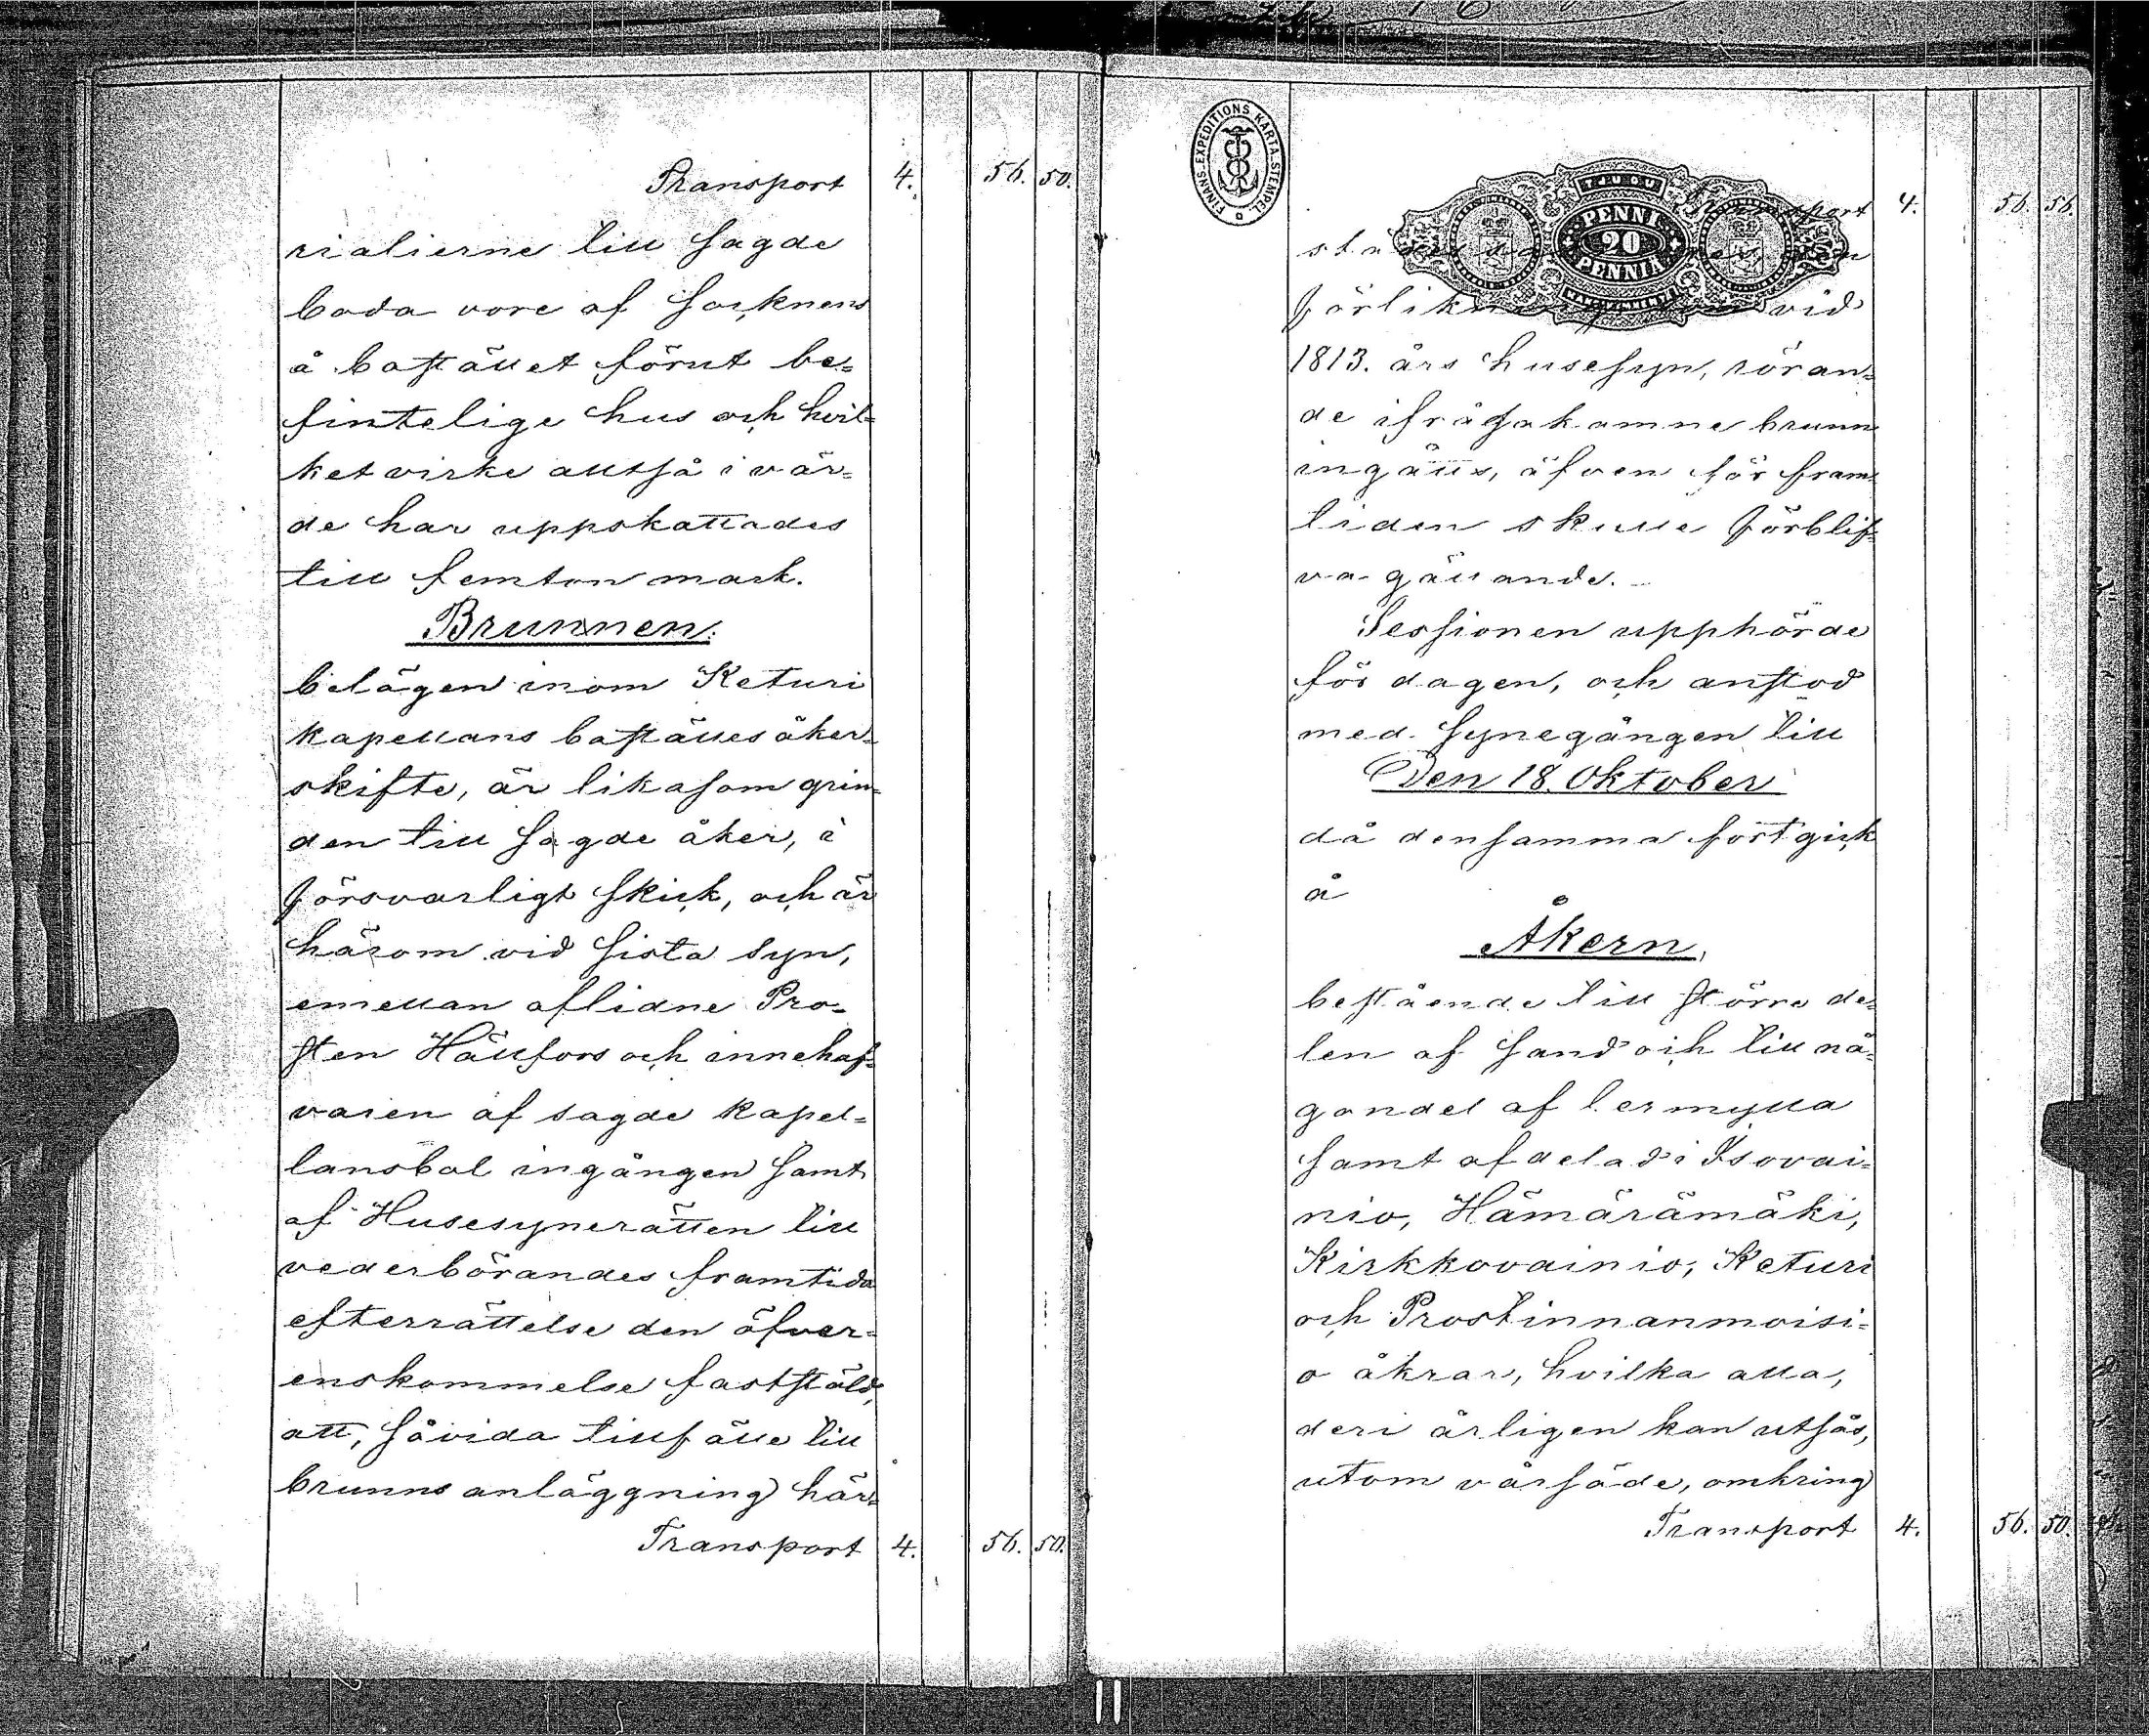 Transport 4. 56. 50.
rialierne till sagde
boda vore af socknens
å bostället förut be-
fintelige hus och hvil-
ket virke alltså i vär-
de har uppskattades
till femton mark.
Brunnen.
belägen inom Keturi
kapellans boställes åker-
skifte, är likasom grin-
den till sagde åker, i
försvarligt skick, och är
härom vid sista syn,
emellan aflidne Pro-
sten Hällfors och innehaf-
varen af sagde kapel-
lansbol ingången samt
af Husesynerätten till
vederbörandes framtida
efterrättelse den öfver-
enskommelse fastställd,
att, såvida tillfälle till
brunns anläggning här-
Transport 4. 56. 50.
FINANS. EXPEDITIONS KARTA. STEMPEL.
TJUGU
PENNI
20
PENNIÄ
Transport 4. 56. 56.
förlikning vid
1813. års husesyn, röran-
de ifrågakomne brunn
ingåtts, äfven för fram-
tiden skulle förblif-
va gällande.
Sessionen upphörde
för dagen, och anstod
med synegången till
Den 18. Oktober
då densamma fortgick
å
Åkern,
bestående till större de-
len af sand och till nå-
gon del af lermylla
samt afdelad i Isovai-
nio, Hämärämäki,
Kirkkovainio, Keturi
och Prostinnanmoisi-
o åkrar, hvilka alla,
deri årligen kan utsås,
utom vårsäde, omkring
Transport 4. 56. 50.